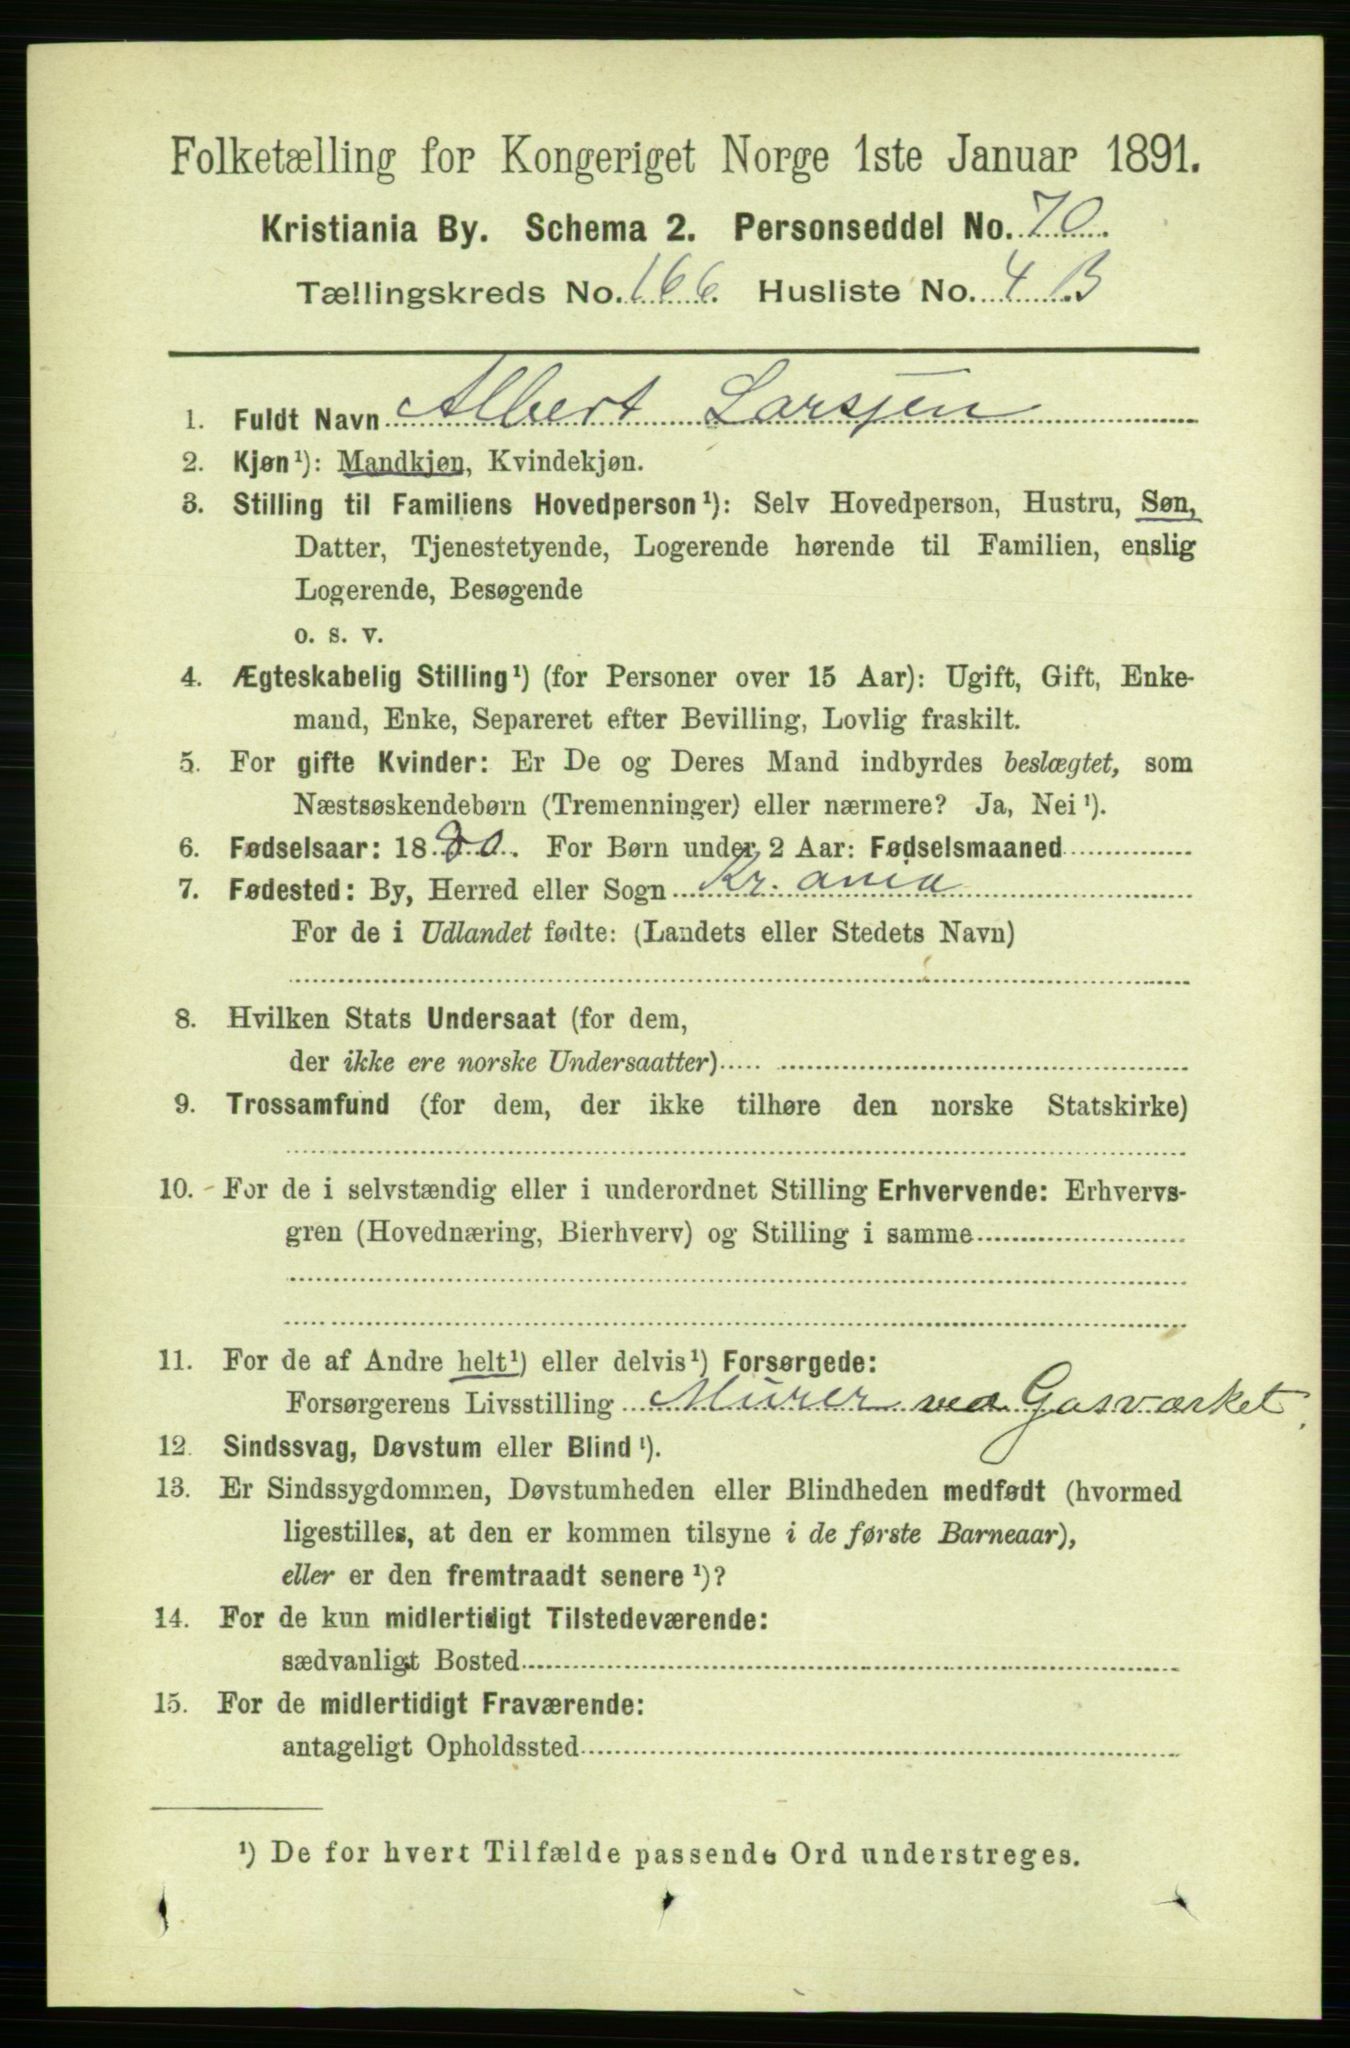 Folketælling for Kongeriget Norge 1ste Januar 1891.
Kristiania By. Schema 2. Personseddel No. 70.
Tællingskreds No. 166. Husliste No. 4 B
1. Fuldt Navn Albert Larsen
2. Kjøn¹): Mandkjøn, Kvindekjøn.
3. Stilling til Familiens Hovedperson¹): Selv Hovedperson, Hustru, Søn,
Datter, Tjenestetyende, Logerende hørende til Familien, enslig
Logerende, Besøgende
o. s. v.
4. Ægteskabelig Stilling¹) (for Personer over 15 Aar): Ugift, Gift, Enke-
mand, Enke, Separeret efter Bevilling, Lovlig fraskilt.
5. For gifte Kvinder: Er De og Deres Mand indbyrdes beslægtet, som
Næstsøskendebørn (Tremenninger) eller nærmere? Ja, Nei¹).
6. Fødselsaar: 1880. For Børn under 2 Aar: Fødselsmaaned
7. Fødested: By, Herred eller Sogn Kr. ania
For de i Udlandet fødte: (Landets eller Stedets Navn)
8. Hvilken Stats Undersaat (for dem,
der ikke ere norske Undersaatter)
9. Trossamfund (for dem, der ikke tilhøre den norske Statskirke)
10. For de i selvstændig eller i underordnet Stilling Erhvervende: Erhvervs-
gren (Hovednæring, Bierhverv) og Stilling i samme
11. For de af Andre helt¹) eller delvis¹) Forsørgede:
Forsørgerens Livsstilling Murer ved Gasværket.
12. Sindssvag, Døvstum eller Blind¹).
13. Er Sindssygdommen, Døvstumheden eller Blindheden medfødt (hvormed
ligestilles, at den er kommen tilsyne i de første Barneaar),
eller er den fremtraadt senere¹)?
14. For de kun midlertidigt Tilstedeværende:
sædvanligt Bosted
15. For de midlertidigt Fraværende:
antageligt Opholdssted
¹) De for hvert Tilfælde passende Ord understreges.